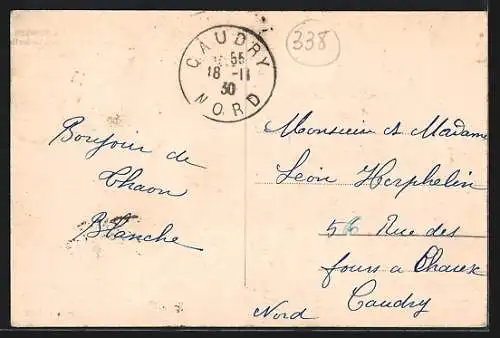 CAUDRY
55
18 -11
30
NORD
338
Bonjour de
Thaon
Blanche
Monsieur & Madame
Léon Herphelin
56 Rue des
fours a Chaux
Caudry
Nord